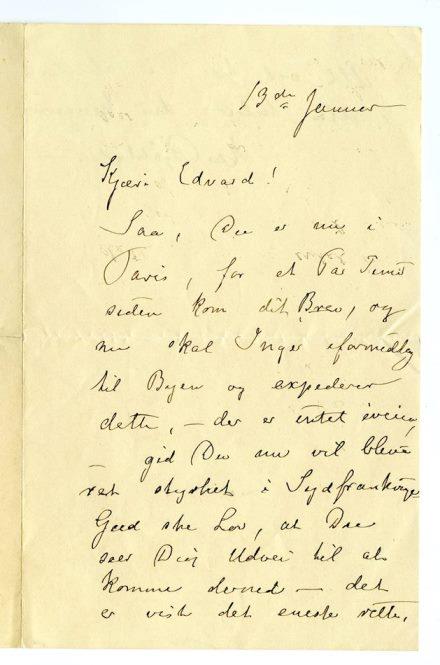 13de Januar
Kjære Edvard!
Saa, Du er nu i
Paris, for et Par Timer
siden kom dit Brev, og
nu skal Inger iformiddag
til Byen og expederer
dette, – der er intet iveien,
– gid Du nu vil bleve
ret styrket i Sydfrankrige
Gud ske Lov, at Du
saa Dig Udvei til at
komme derned – det
er vist det eneste rette,